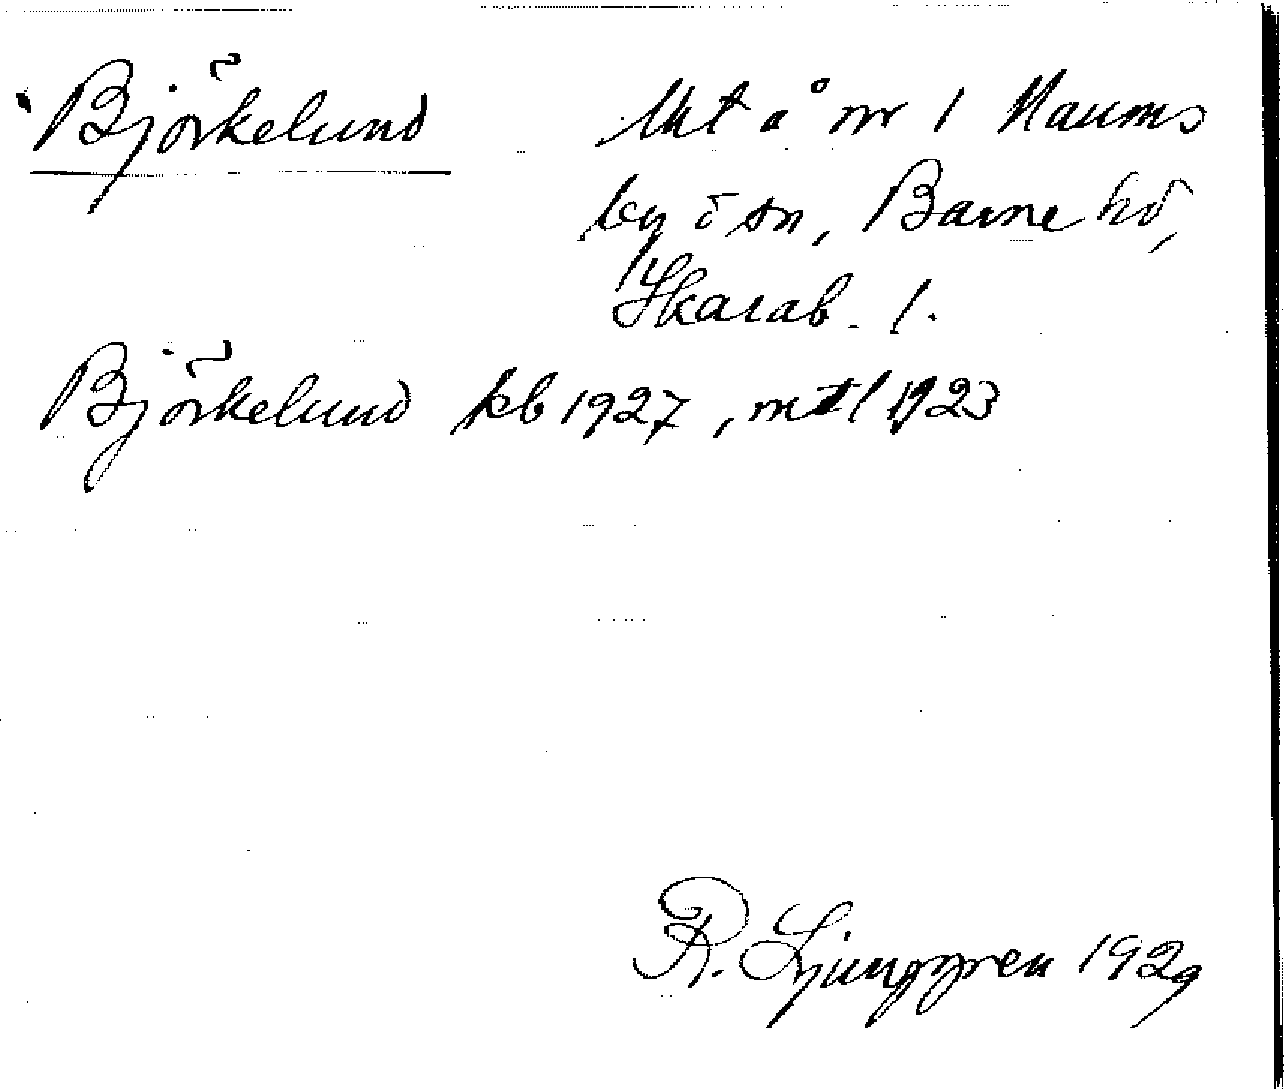 Björkelund
Lht å nr 1 Naums
by o sn, Barne hd,
Skarab. l.
Björkelund kb 1927, mtl 1923
R. Ljunggren 1929